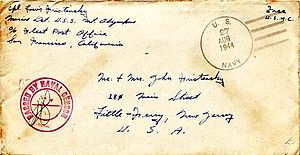 Cpl Louis
Marine Det. U.S.S. Mt
℅ Fleet Post Office
San Francisco, California
U. S.
27
AUG
1944
NAVY
Free
U.S.M.C.
Mr. + Mrs. John
Main Street
Little Ferry, New Jersey
U. S. A.
PASSED BY NAVAL CENSOR